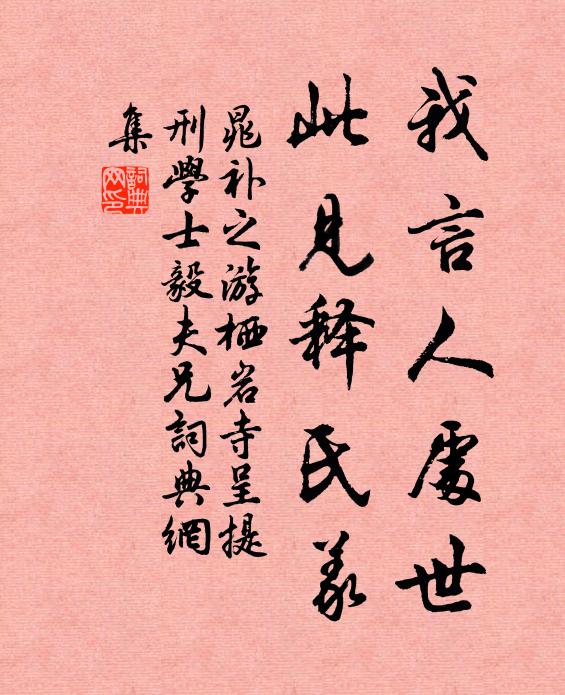 我言人處世
此見释氏義
晁补之游栖岩寺呈提
刑學士毅夫兄詞典網
集
詞典
网印